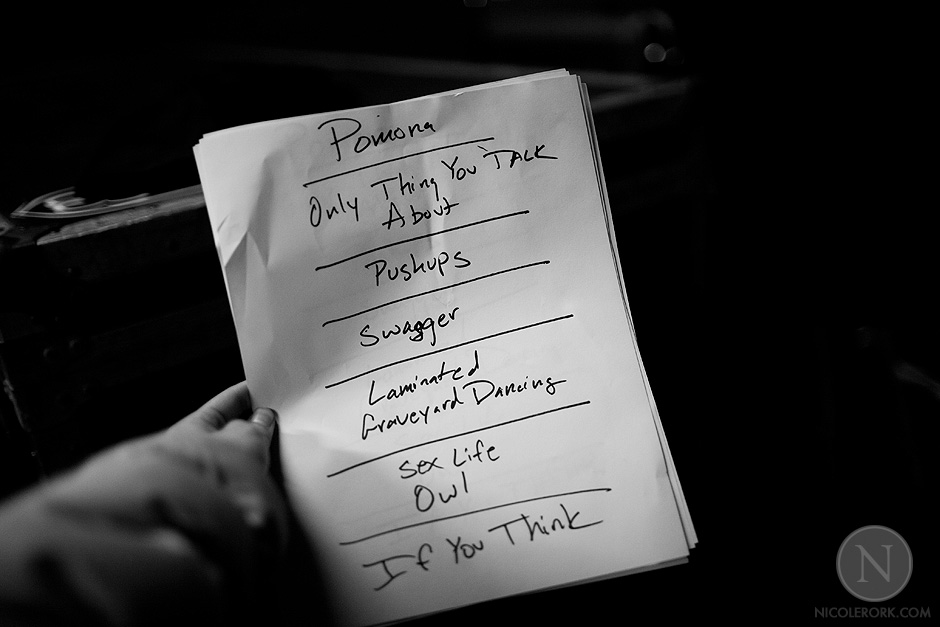 Pomona
Only Thing You TALK
About
Pushups
Swagger
Laminated
Graveyard Dancing
Sex Life
Owl
If You Think
N
NICOLERORK.COM